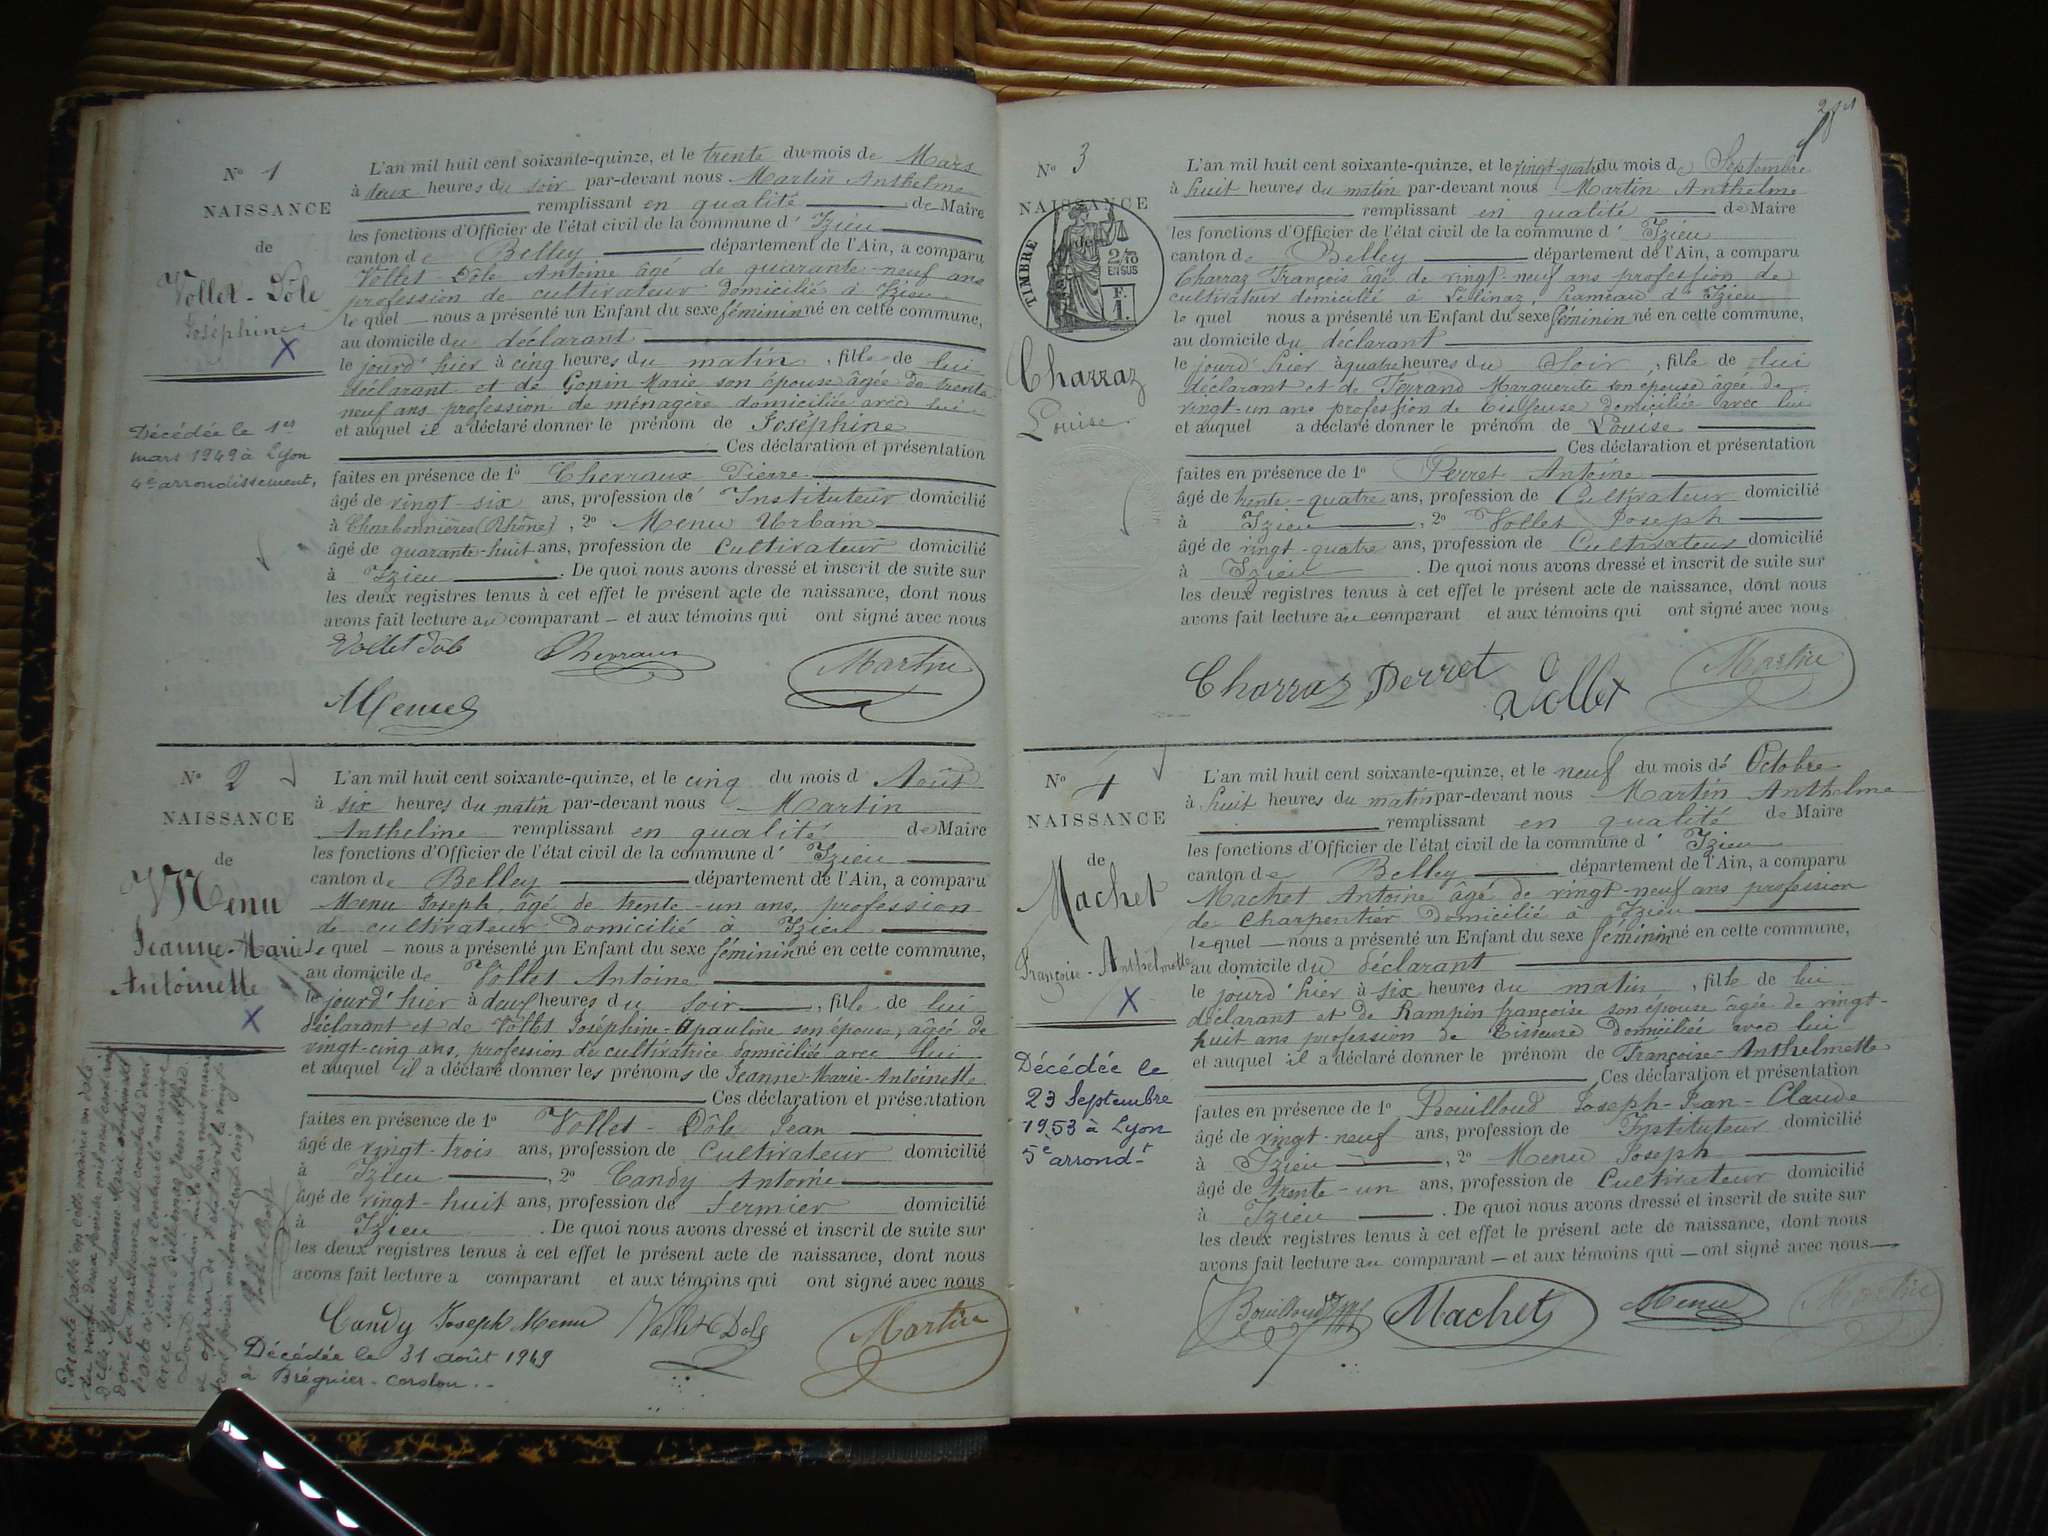 N° 1
NAISSANCE
de
Vollet-Dôle
Joséphine
X
Décédée le 1er
mars 1949 à Lyon
4e arrondissement.
L'an mil huit cent soixante-quinze, et le trente du mois de Mars
à deux heures du soir par-devant nous Martin Anthelme
remplissant en qualité de Maire
les fonctions d'Officier de l'état civil de la commune d' Izieu
canton de Belley département de l'Ain, a comparu
Vollet-Dôle Antoine âgé de quarante-neuf ans
profession de cultivateur domicilié à Izieu
lequel nous a présenté un Enfant du sexe féminin né en cette commune,
au domicile du déclarant
le jourd'hier à cinq heures du matin, fille de lui
déclarant et de Gonin Marie son épouse âgée de trente
neuf ans profession de ménagère domiciliée avec lui
et auquel il a déclaré donner le prénom de Joséphine
Ces déclaration et présentation
faites en présence de 1° Chevraux Pierre
âgé de vingt-six ans, profession de Instituteur domicilié
à Charbonnières (Rhône), 2° Menu Urbain
âgé de quarante-huit ans, profession de Cultivateur domicilié
à Izieu. De quoi nous avons dressé et inscrit de suite sur
les deux registres tenus à cet effet le présent acte de naissance, dont nous
avons fait lecture au comparant et aux témoins qui ont signé avec nous
Vollet Dôle Chevraux Martin
Menu
N° 2
NAISSANCE
de
Menu
Jeanne-Marie
Antoinette
X
L'an mil huit cent soixante-quinze, et le cinq du mois d Août
à six heures du matin par-devant nous Martin
Anthelme remplissant en qualité de Maire
les fonctions d'Officier de l'état civil de la commune d' Izieu
canton de Belley département de l'Ain, a comparu
Menu Joseph, âgé de trente-un ans, profession
de cultivateur domicilié à Izieu
lequel nous a présenté un Enfant du sexe féminin né en cette commune,
au domicile de Vollet Antoine
le jourd'hier à deux heures du soir, fille de lui
déclarant et de Vollet Joséphine-Apauline son épouse, âgée de
vingt-cinq ans, profession de cultivatrice domiciliée avec lui
et auquel il a déclaré donner les prénoms de Jeanne-Marie-Antoinette
Ces déclaration et présentation
faites en présence de 1° Vollet-Dôle Jean
âgé de vingt-trois ans, profession de Cultivateur domicilié
à Izieu, 2° Candy Antoine
âgé de vingt-huit ans, profession de Fermier domicilié
à Izieu. De quoi nous avons dressé et inscrit de suite sur
les deux registres tenus à cet effet le présent acte de naissance, dont nous
avons fait lecture a comparant et aux témoins qui ont signé avec nous
Candy Joseph Menu Vollet Dole Martin
Décédée le 31 août 1949
à Brégnier-Cordon.
N° 3
NAISSANCE
TIMBRE
2/10
EN SUS
F.
1.
Charraz
Louise
L'an mil huit cent soixante-quinze, et le vingt-quatre du mois de Septembre
à huit heures du matin par-devant nous Martin Anthelme
remplissant en qualité de Maire
les fonctions d'Officier de l'état civil de la commune d' Izieu
canton de Belley département de l'Ain, a comparu
Charraz François âgé de vingt-neuf ans profession de
cultivateur domicilié à Lélinaz, hameau d'Izieu
lequel nous a présenté un Enfant du sexe féminin né en cette commune,
au domicile du déclarant
le jourd'hier à quatre heures du Soir, fille de lui
déclarant et de Ferrand Marguerite son épouse âgée de
vingt-un ans profession de Tisseuse domiciliée avec lui
et auquel a déclaré donner le prénom de Louise
Ces déclaration et présentation
faites en présence de 1° Perret Antoine
âgé de trente-quatre ans, profession de Cultivateur domicilié
à Izieu, 2° Vollet Joseph
âgé de vingt-quatre ans, profession de Cultivateur domicilié
à Izieu. De quoi nous avons dressé et inscrit de suite sur
les deux registres tenus à cet effet le présent acte de naissance, dont nous
avons fait lecture au comparant et aux témoins qui ont signé avec nous
Charraz Perret Vollet Martin
N° 4
NAISSANCE
de
Machet
Françoise-Anthelmette
X
Décédée le
23 Septembre
1953 à Lyon
5e arrondt
L'an mil huit cent soixante-quinze, et le neuf du mois de Octobre
à huit heures du matin par-devant nous Martin Anthelme
remplissant en qualité de Maire
les fonctions d'Officier de l'état civil de la commune d' Izieu
canton de Belley département de l'Ain, a comparu
Machet Antoine âgé de vingt-neuf ans profession
de Charpentier domicilié à Izieu
lequel nous a présenté un Enfant du sexe féminin né en cette commune,
au domicile du déclarant
le jourd'hier à six heures du matin, fille de lui
déclarant et de Rampin françoise son épouse âgée de vingt-
huit ans profession de Tisseuse domiciliée avec lui
et auquel il a déclaré donner le prénom de Françoise-Anthelmette
Ces déclaration et présentation
faites en présence de 1° Bouilloud Joseph-Jean-Claude
âgé de vingt-neuf ans, profession de Instituteur domicilié
à Izieu, 2° Menu Joseph
âgé de trente-un ans, profession de Cultivateur domicilié
à Izieu. De quoi nous avons dressé et inscrit de suite sur
les deux registres tenus à cet effet le présent acte de naissance, dont nous
avons fait lecture au comparant et aux témoins qui ont signé avec nous
Bouilloud Machet Menu Martin